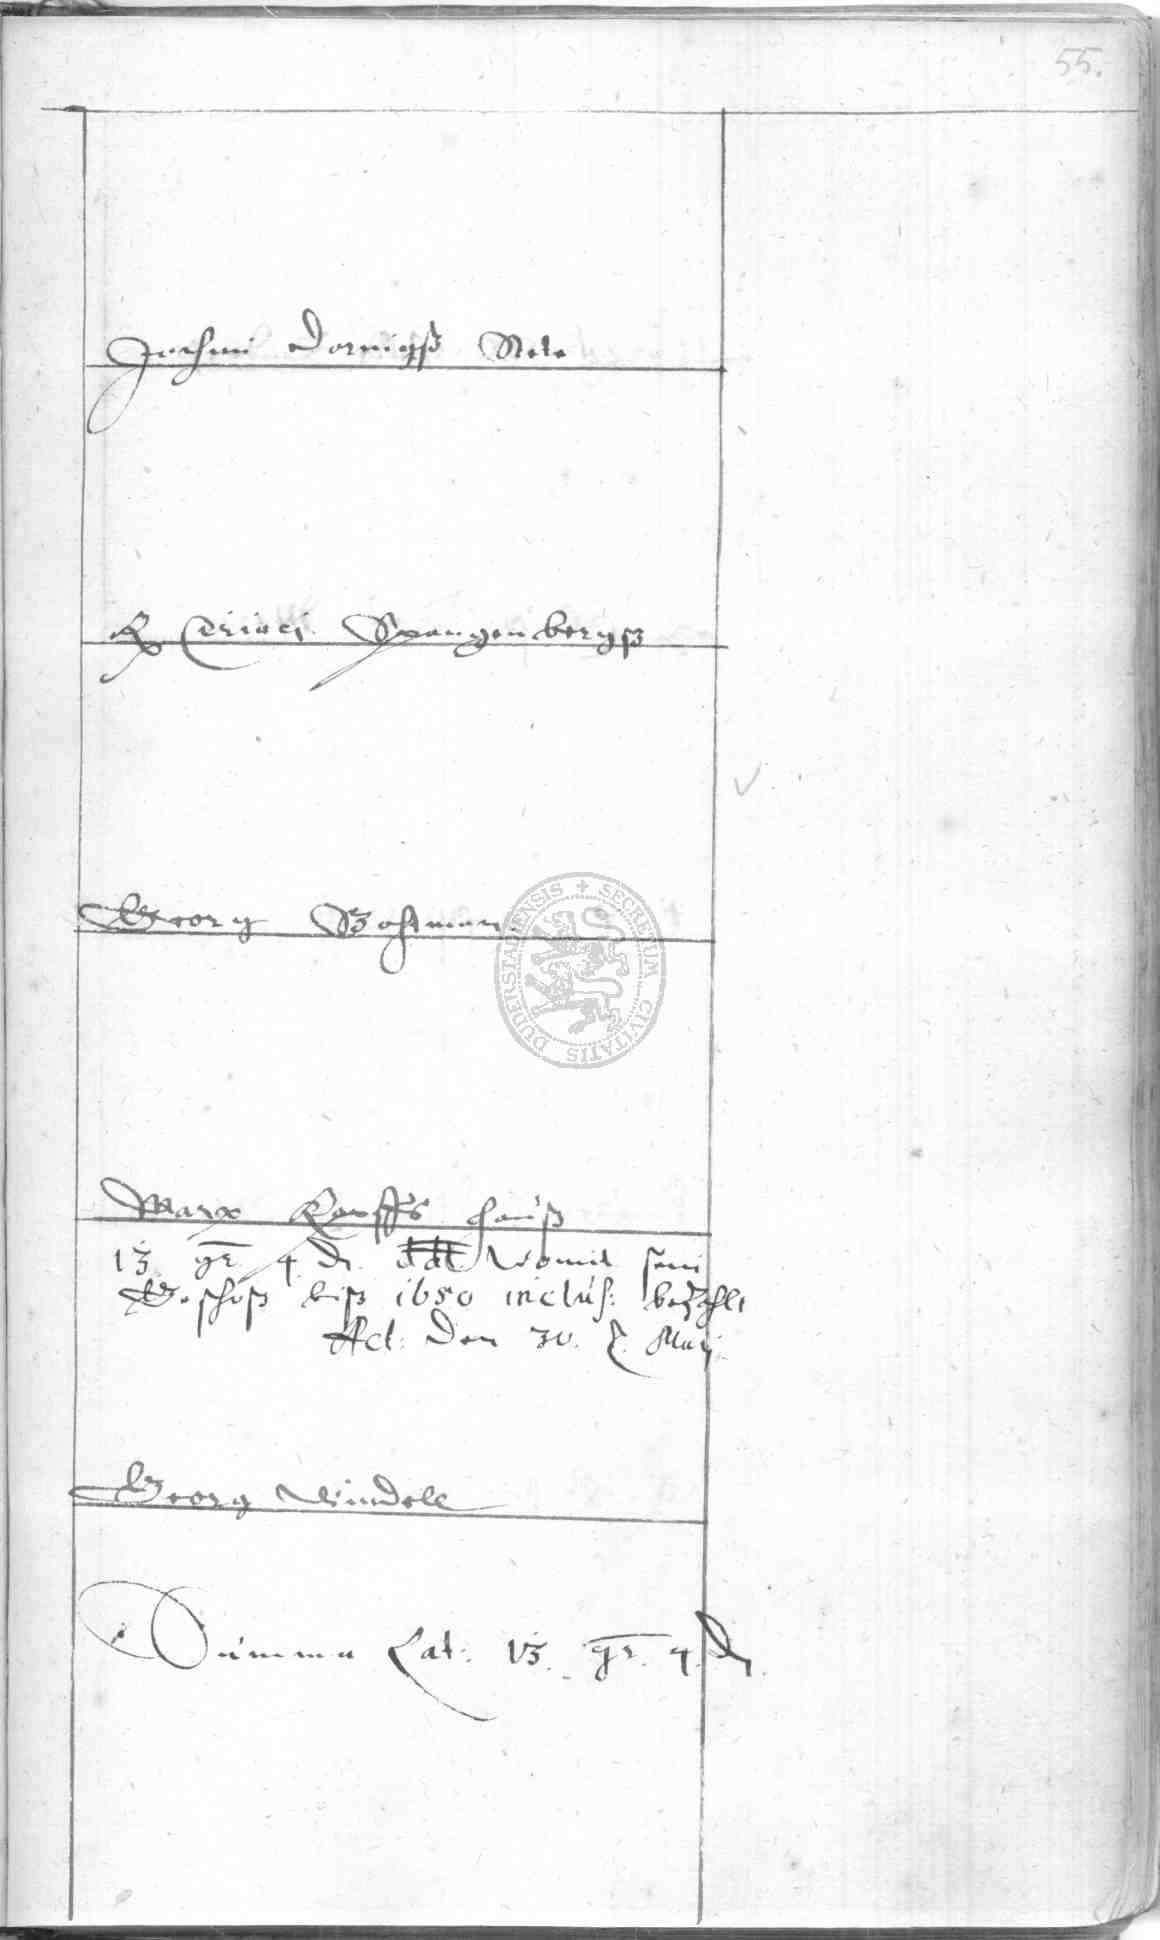 55.
Jochim Dornigß Stete
Ciriaci Spangenbergß
Georg Bohtman
SECRETUM CIVITATIS DUDERSTADIENSIS
Marx hauß
13 gr 4 d. dat womit sein
Geschoß biß 1650 inclus: bezahlt
Act: den 30. Maij
Georg Windell
Summa Lat: 13. gr. 4. d.